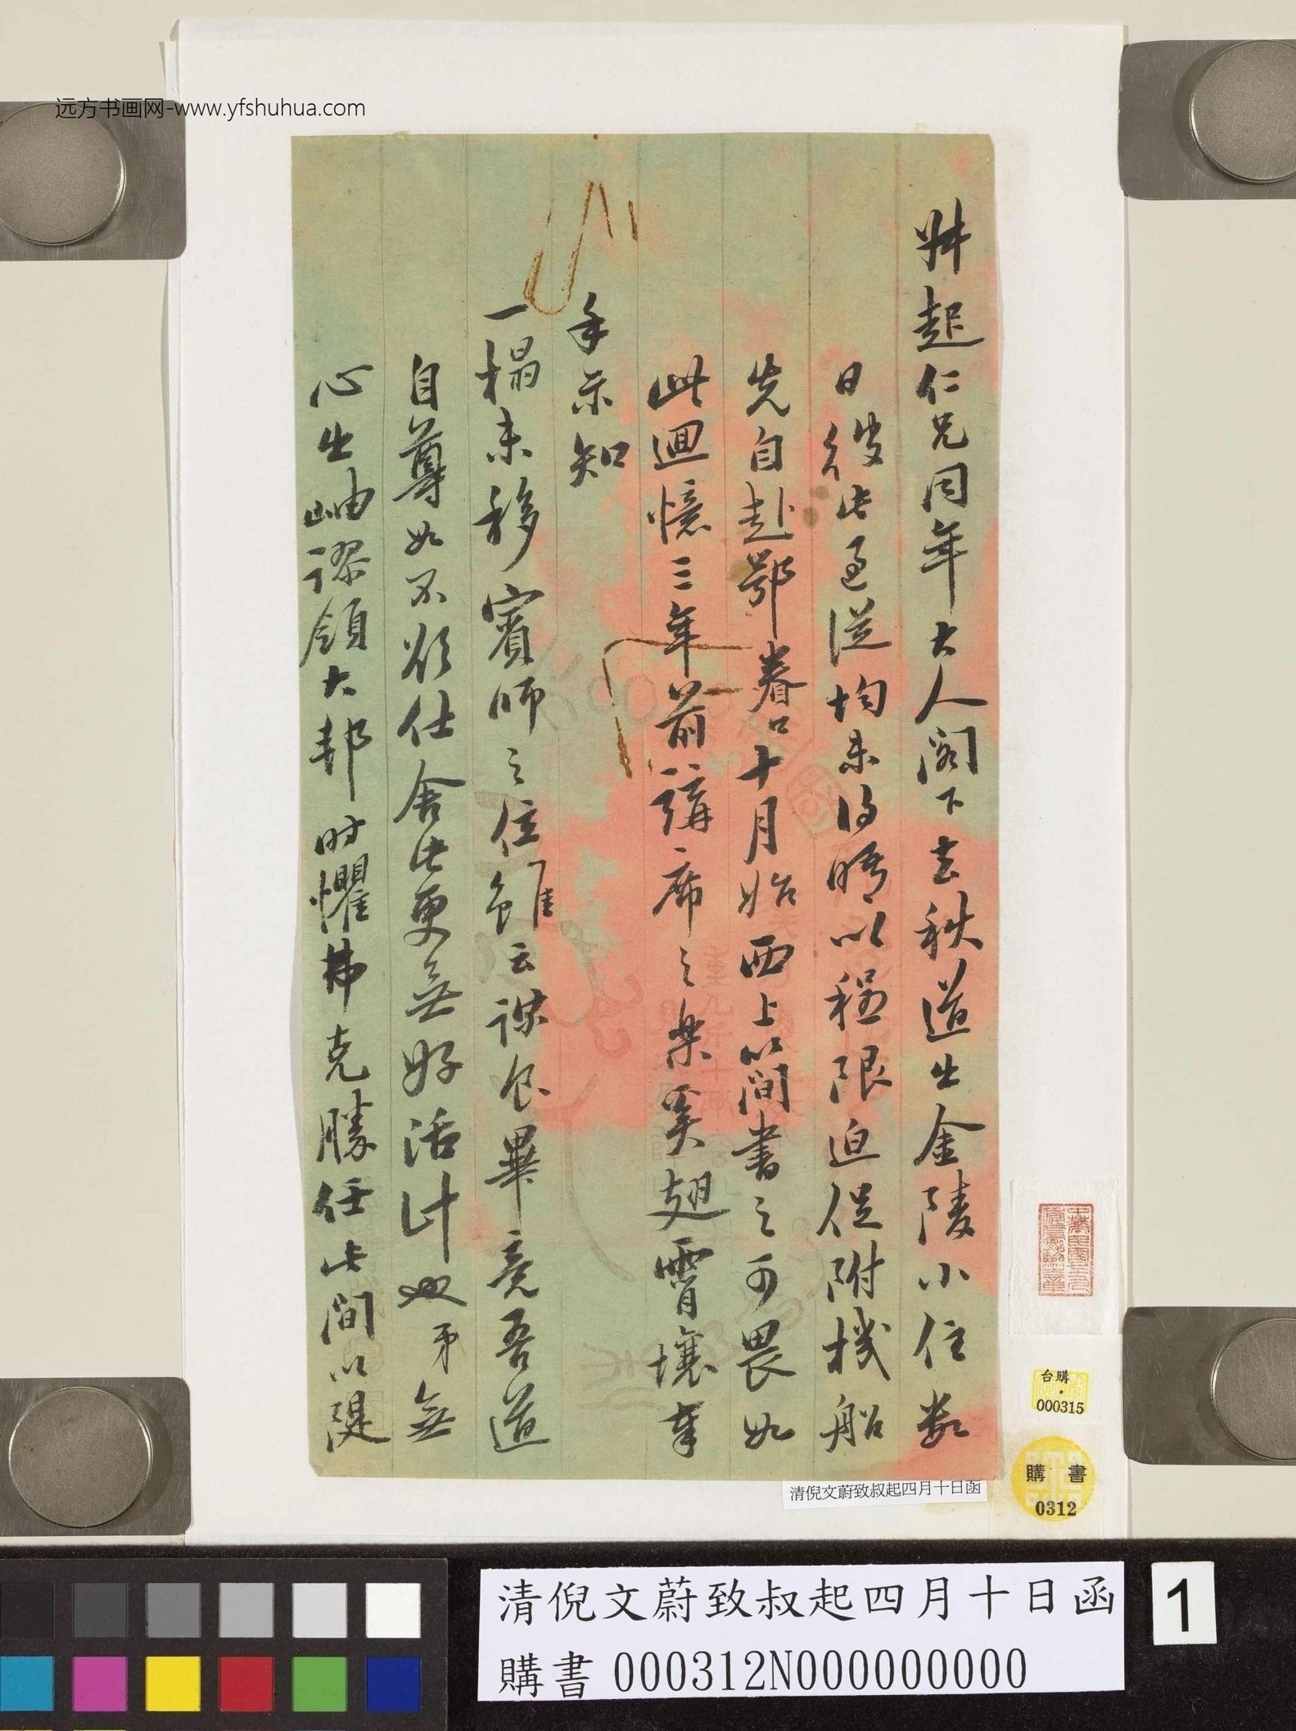 远方书画网-www.yfshuhua.com
叔起仁兄同年大人阁下去秋道出金陵小住数
日彼此过従均未得晤以程限迫促附機船
先自赴鄂眷口十月始西上以簡書之可畏如
此迴憶三年前講席之樂奚翅霄壤奉
手示知
一榻未移賓師之位雖云謀食畢竟吾道
自尊如不欲仕舍此更無好活計也弟無
心出岫謬領大邦時懼弗克勝任此間以隄
台購
000315
購書
0312
清倪文蔚致叔起四月十日函
清倪文蔚致叔起四月十日函
購書 000312N000000000
1